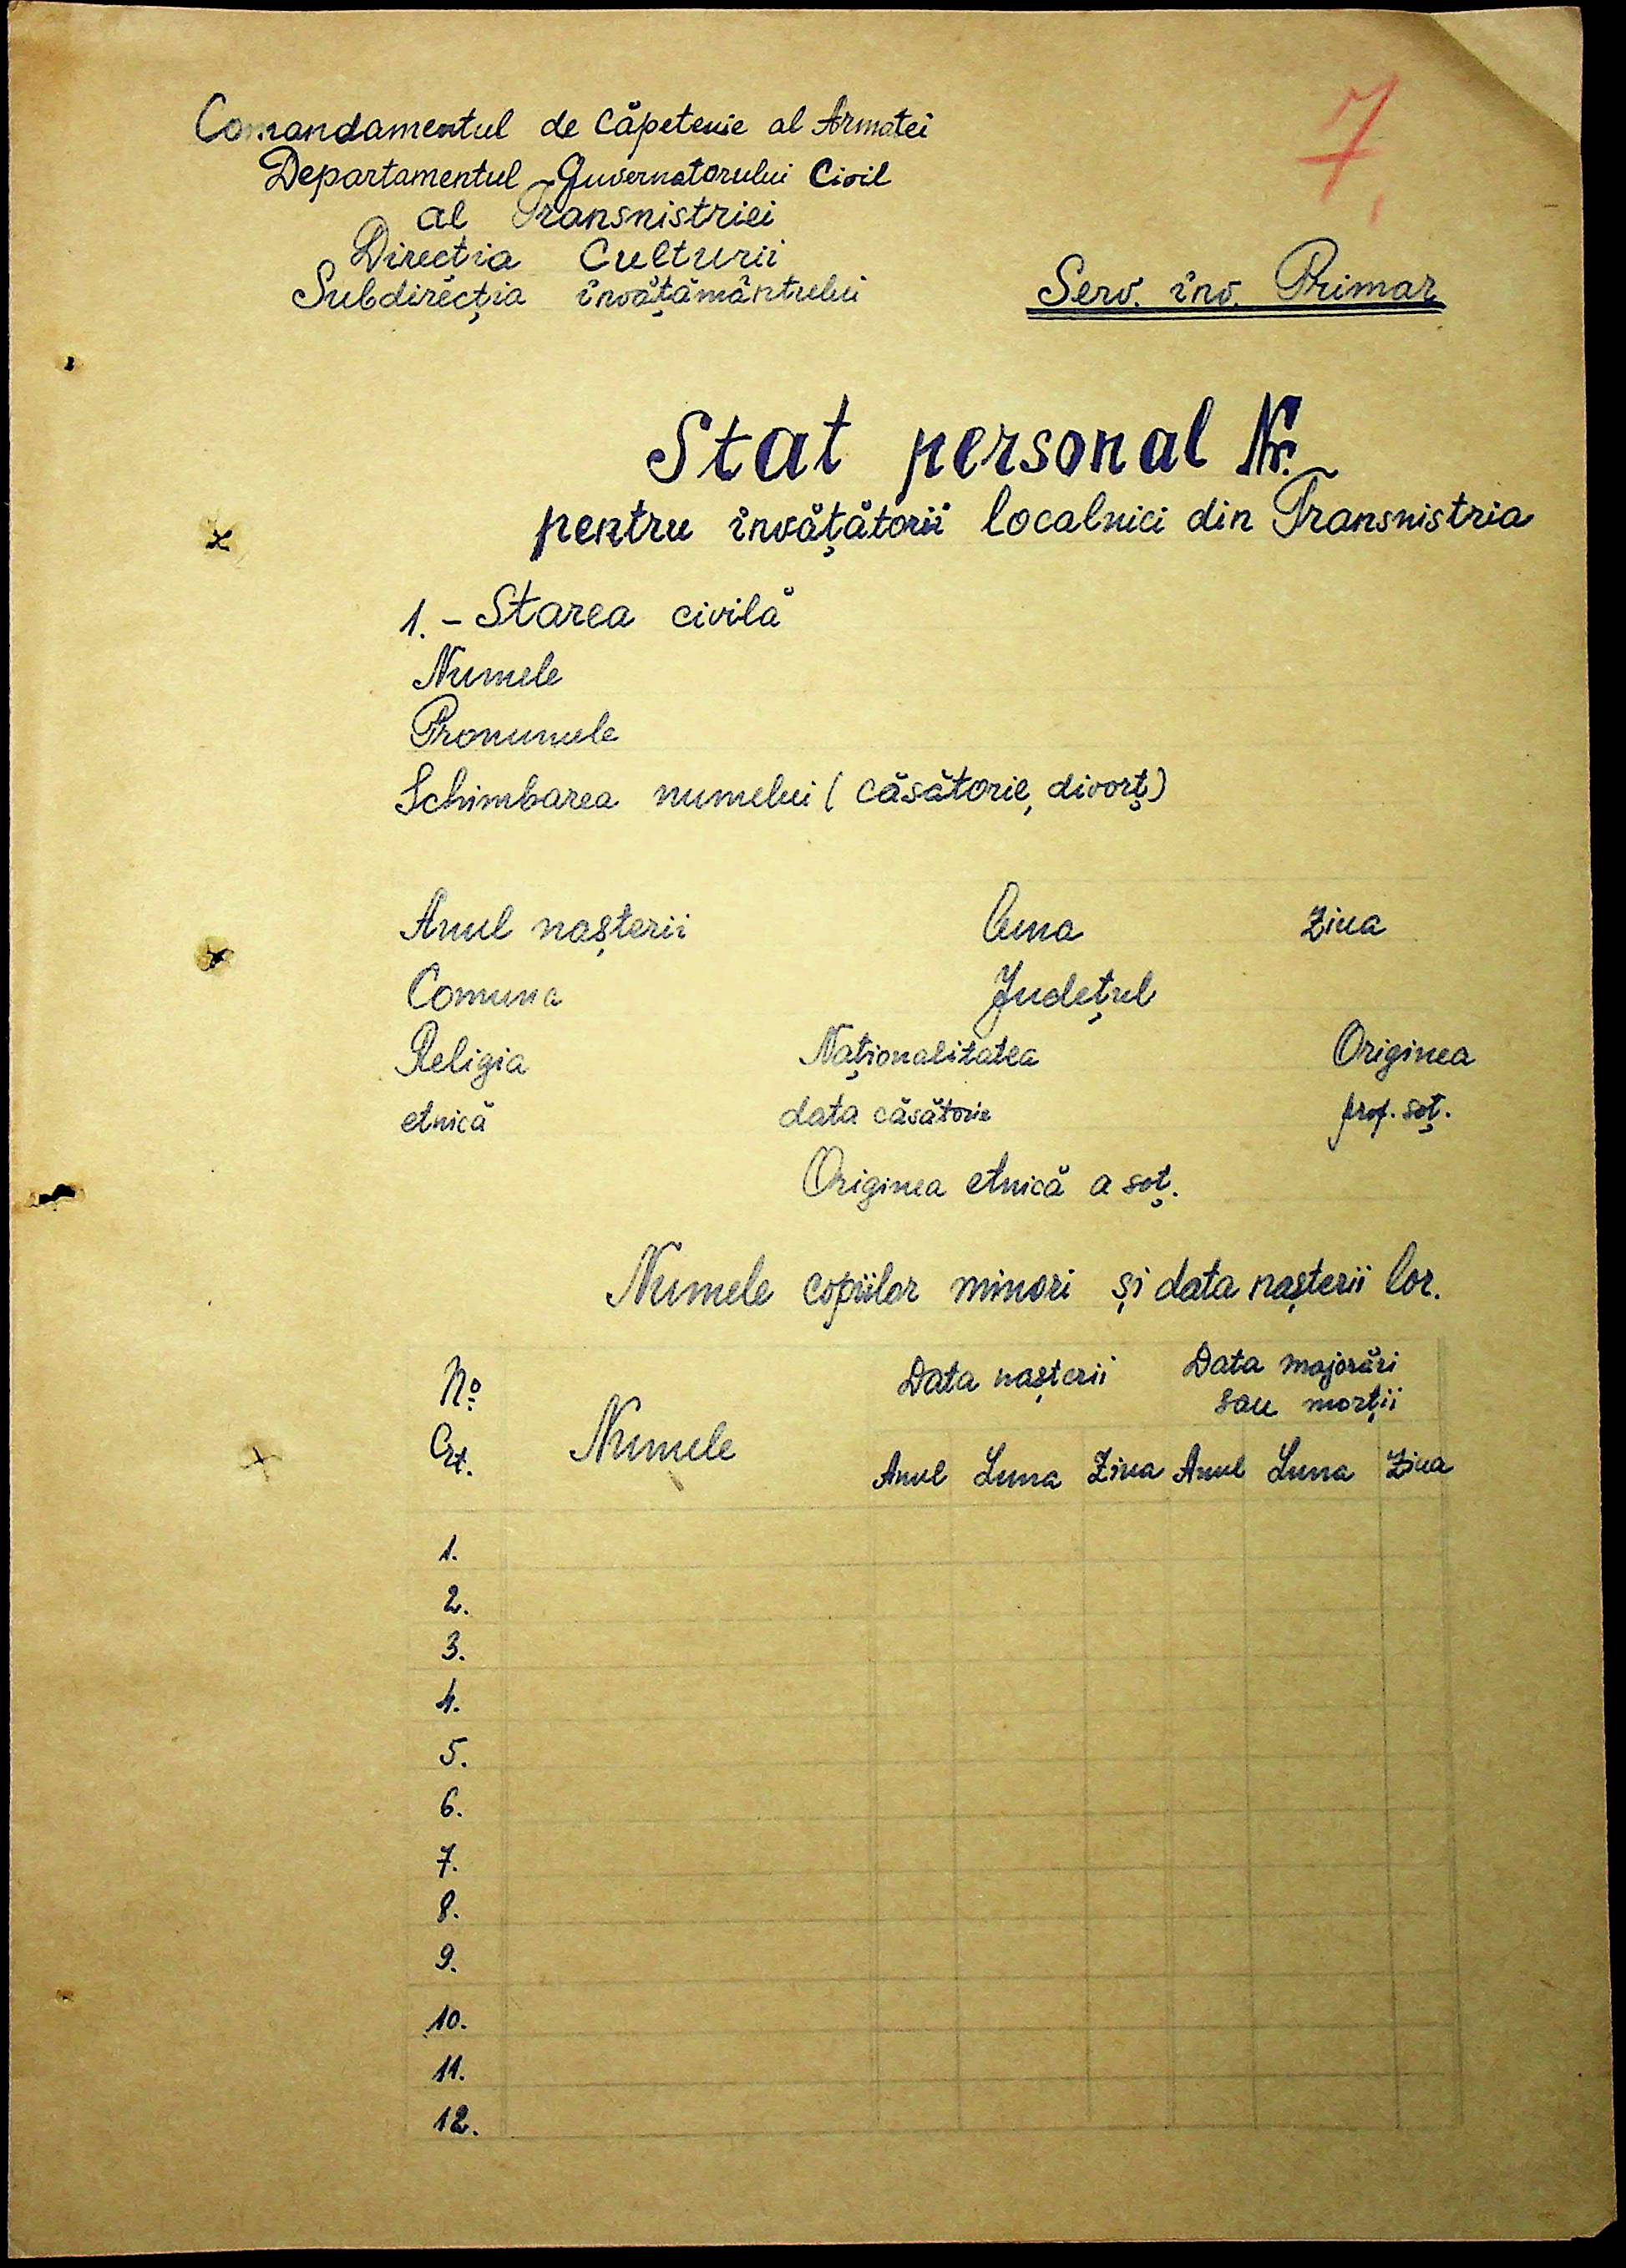 7.
Comandamentul de Căpetenie al Armatei
Departamentul Guvernatorului Civil
al Transnistriei
Directia Culturii
Subdirecția învățământului
Serv. înv. Primar
Stat personal Nr.
pentru învățătorii localnici din Transnistria
1. - Starea civilă
Numele
Pronumele
Schimbarea numelui (căsătorie, divorț)
Anul nașterii Luna Ziua
Comuna Județul
Religia Naționalitatea Originea
etnică data căsătorie prof. soț.
Originea etnică a soț.
Numele copiilor minori și data nașterii lor.
No Crt. Numele Data nașterii Data majorări
sau morții
Anul Luna Ziua Anul Luna Ziua
1.
2.
3.
4.
5.
6.
7.
8.
9.
10.
11.
12.